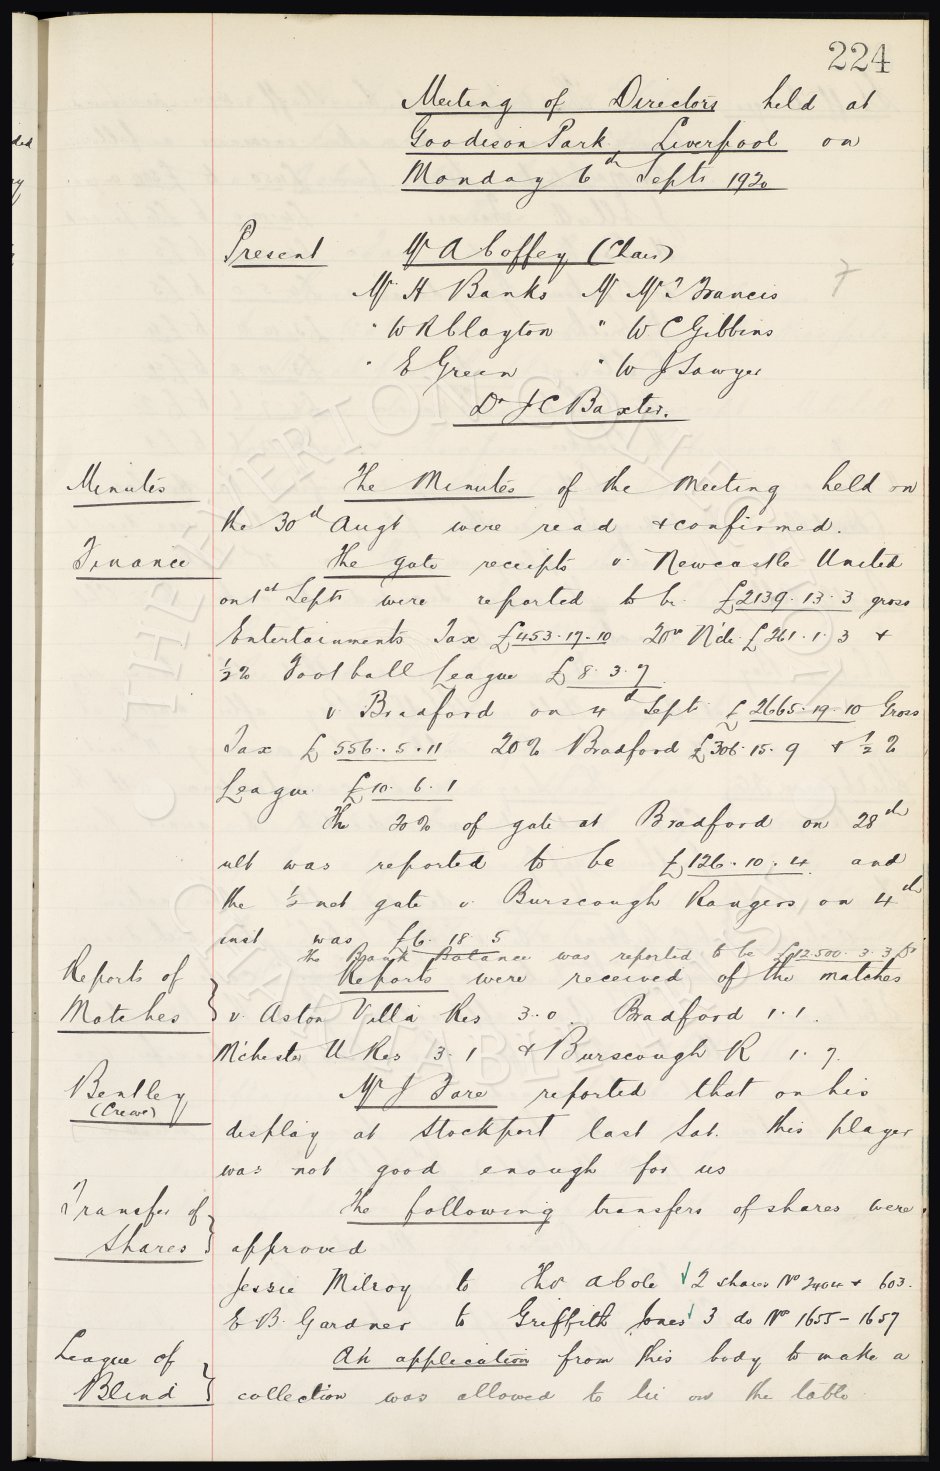 224
Meeting of Directors held at
Goodison Park Liverpool on
Monday 6th Septr 1920
Present Mr A Coffey (Chair)
Mr H Banks Mr W F Francis
" W R Clayton " W C Gibbins
" E Green " W J Sawyer
Dr J C Baxter.
Minutes The Minutes of the Meeting held on
the 30th Augt were read & confirmed.
Finance The gate receipts v. Newcastle United
on 1st Septr were reported to be £2139.13.3 gross
Entertainments Tax £453.17.10 20% N'cle £261.1.3 &
½% Football League £8.3.7
v Bradford on 4th Septr £2665.19.10 Gross
Tax £556.5.11 20% Bradford £306.15.9 & ½%
League £10.6.1
The 20% of gate at Bradford on 28th
ult was reported to be £126.10.4 and
the ½ net gate v. Burscough Rangers on 4th
inst was £6.18.5
The Bank Balance was reported to be £12.500.3.3
Reports of Matches } Reports were received of the matches
v. Aston Villa Res 3.0. Bradford 1.1.
M'chester U Res 3.1 & Burscough R 1.7.
Bentley (Crewe) Mr J Fare reported that on his
display at Stockport last Sat. this player
was not good enough for us
Transfer of Shares } The following transfers of shares were
approved
Jessie Milroy to Thos Abole 2 shares No 2404 & 603.
E B. Gardner to Griffith Jones 3 do No 1655 - 1657
League of Blind } An application from this body to make a
collection was allowed to lie on the table
THE EVERTON COLLECTION
CHARITABLE TRUST